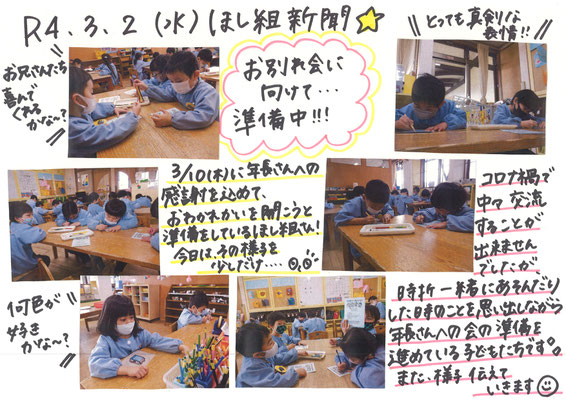 R4.3.2(水)ほし組新聞
お兄さんたち
喜んで
くれる
かな〜?
お別れ会に
向けて…
準備中!!!
とっても真剣な
表情!!
3/10(木)に年長さんへの
感謝を込めて、
おわかれかいを開こうと
準備をしているほし組さん!
今日は、その様子を
少しだけ‥‥
コロナ禍で
中々交流
することが
出来ません
でしたが、
時折一緒にあそんだり
した時のことを思い出しながら
年長さんへの会の準備を
進めている子どもたちです。
また、様子伝えて
いきます
何色が
好き
かな〜?